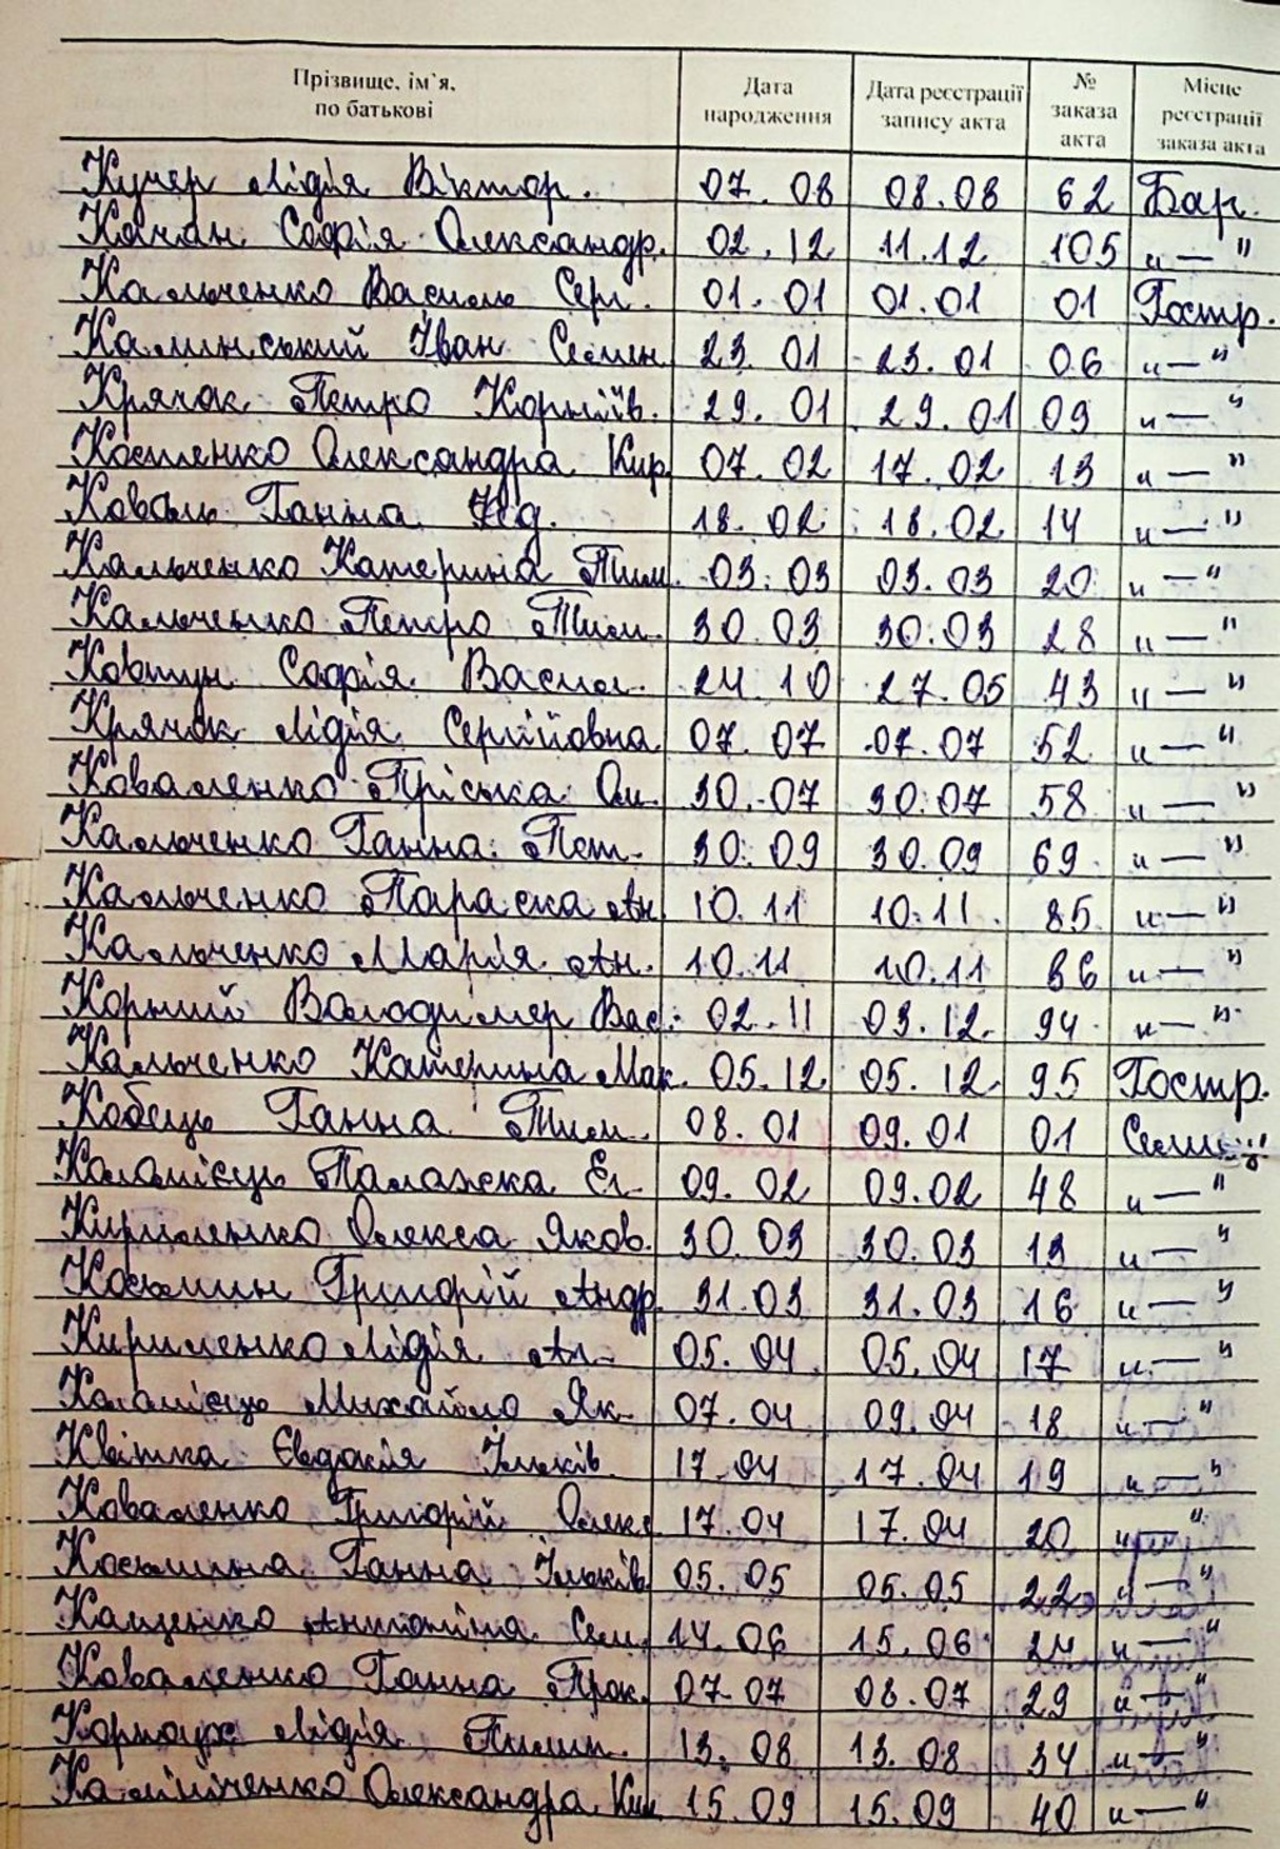 Прізвище, ім`я, по батькові | Дата народження | Дата реєстрації запису акта | № заказа акта | Місце реєстрації заказа акта
Кучер Лідія Віктор. 07.08 08.08 62 Бар.
Качан Софія Олександр. 02.12 11.12 105 "—"
Кальченко Василь Серг. 01.01 01.01 01 Гостр.
Калинський Іван Семен 23.01 23.01 06 "—"
Крячок Петро Корніїв. 29.01 29.01 09 "—"
Костенко Олександра Кир. 07.02 17.02 13 "—"
Коваль Ганна 18.02 18.02 14 "—"
Кальченко Катерина Тим. 03.03 03.03 20 "—"
Кальченко Петро Тим. 30.03 30.03 28 "—"
Ковтун Софія Васил. 24.10 27.05 43 "—"
Крячок Лідія Сергійовна 07.07 07.07 52 "—"
Коваленко Пріська Ол. 30.07 30.07 58 "—"
Кальченко Ганна Пет. 30.09 30.09 69 "—"
Кальченко Параска Ан. 10.11 10.11. 85 "—"
Кальченко Марія Ан. 10.11 10.11 86 "—"
Корній Володимер Вас. 02.11 03.12. 94 "—"
Кальченко Катерина Мак. 05.12 05.12. 95 Гостр.
Кобець Ганна Тим. 08.01 09.01 01
Коломієць Палажка Єл. 09.02 09.02 48 "—"
Кириленко Олекса Яков. 30.03 30.03 13 "—"
Косьмин Григорій Андр. 31.03 31.03 16 "—"
Кириленко Лідія Ал. 05.04 05.04 17 "—"
Коломієць Михайло Як. 07.04 09.04 18 "—"
Квітка Євдокія Ільків. 17.04 17.04 19 "—"
Коваленко Григорій Олекс 17.04 17.04 20 "—"
Косьмина Ганна Ільків. 05.05 05.05 22 "—"
Кащенко Антоніна Сем. 14.06 15.06 24 "—"
Коваленко Ганна Прок. 07.07 08.07 29 "—"
Корноух Лідія Пилип. 13.08 13.08 34 "—"
Калініченко Олександра 15.09 15.09 40 "—"